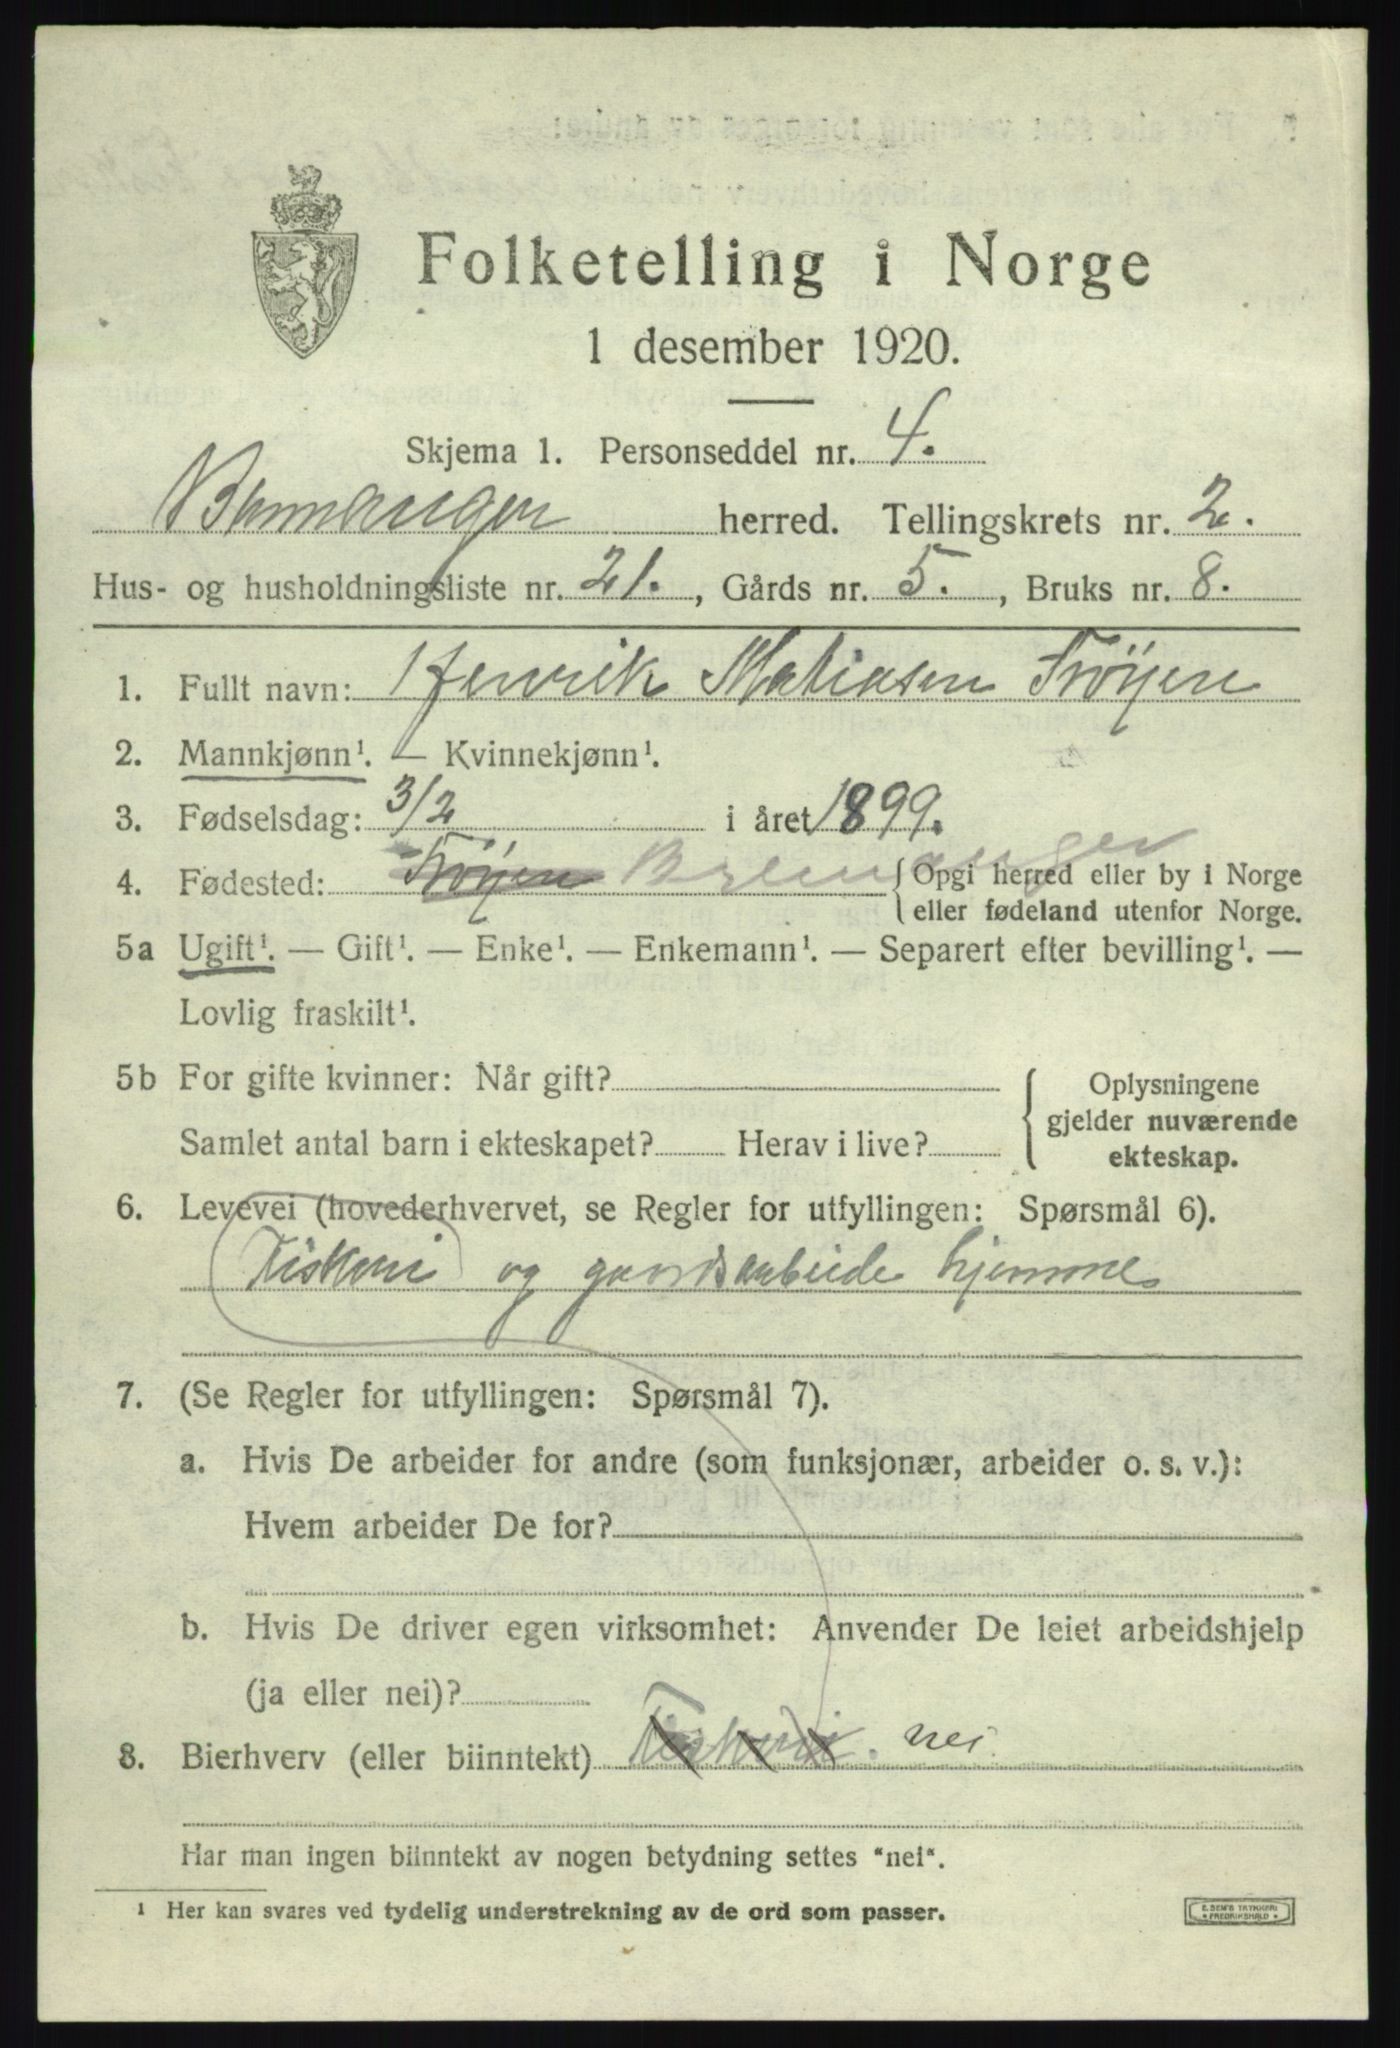 Folketelling i Norge
1 desember 1920.
Skjema 1. Personseddel nr. 4.
Bremanger herred. Tellingskrets nr. 2.
Hus- og husholdningsliste nr. 21., Gårds nr. 5., Bruks nr. 8.
1. Fullt navn: Henrik Matiasen Frøyen
2. Mannkjønn¹. — Kvinnekjønn¹.
3. Fødselsdag: 3/2 i året 1899.
4. Fødested: Frøyen Bremanger {Opgi herred eller by i Norge
eller fødeland utenfor Norge.
5a Ugift¹. — Gift¹. — Enke¹. — Enkemann¹. — Separert efter bevilling¹. —
Lovlig fraskilt¹.
5b For gifte kvinner: Når gift?
Samlet antal barn i ekteskapet? Herav i live?
{Oplysningene
gjelder nuværende
ekteskap.
6. Levevei (hovederhvervet, se Regler for utfyllingen: Spørsmål 6).
Fiskeri og gaardsarbeide hjemme
7. (Se Regler for utfyllingen: Spørsmål 7).
a. Hvis De arbeider for andre (som funksjonær, arbeider o. s. v.):
Hvem arbeider De for?
b. Hvis De driver egen virksomhet: Anvender De leiet arbeidshjelp
(ja eller nei)?
8. Bierhverv (eller biinntekt) Fiskeri. nei
Har man ingen biinntekt av nogen betydning settes "nei".
¹ Her kan svares ved tydelig understrekning av de ord som passer.
E. SEM'S TRYKKERI
FREDRIKSHALD